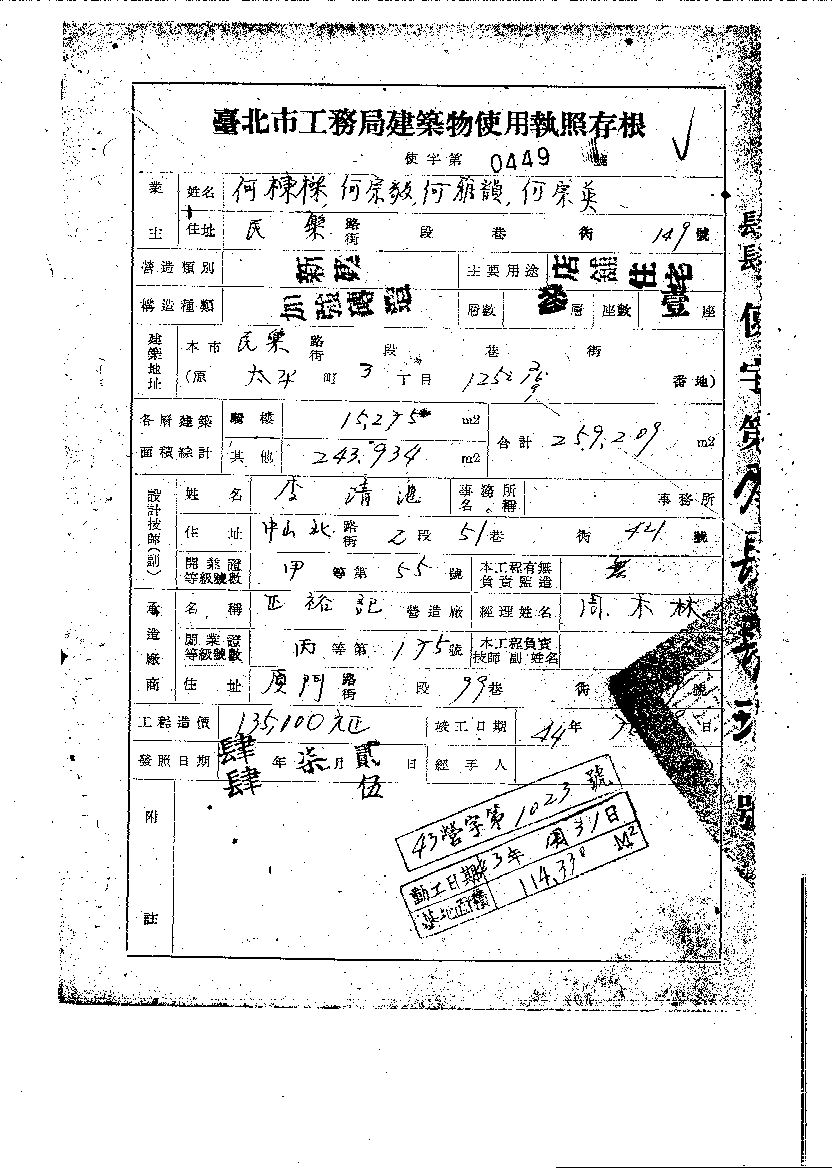 臺北市工務局建築物使用執照存根
使字第 0449 號
業主 姓名 何棟樑,何宗毅,何雅韻,何宗英
住址 民樂 路街 段 巷 衖 149 號
營造類別 新建 主要用途 店舖住宅
構造種類 加強磚造 層數 層 座數 壹 座
建築地址 本市 民樂 路街 段 巷 衖
(原 太平 町 3 丁目 1252 番地)
各層建築面積總計 騎樓 15.275 m2 合計 259.209 m2
其他 243.934 m2
設計技師(副) 姓名 李清池 事務所名稱 事務所
住址 中山北 路街 2 段 51 巷 衖 44 號
開業證等級號數 甲 等第 55 號 本工程有無負責監造 無
承造廠商 名稱 正裕記 營造廠 經理姓名 周木林
開業證等級號數 丙 等第 175 號 本工程負責技師 副 姓名
住址 厦門 路街 段 99 巷 衖 號
工程造價 135,100元正 竣工日期 44 年 日
發照日期 肆肆 年 柒 月 貳伍 日 經手人
附註
43營字第1023號
動工日期 43年 月31日
基地面積 114.330 M2